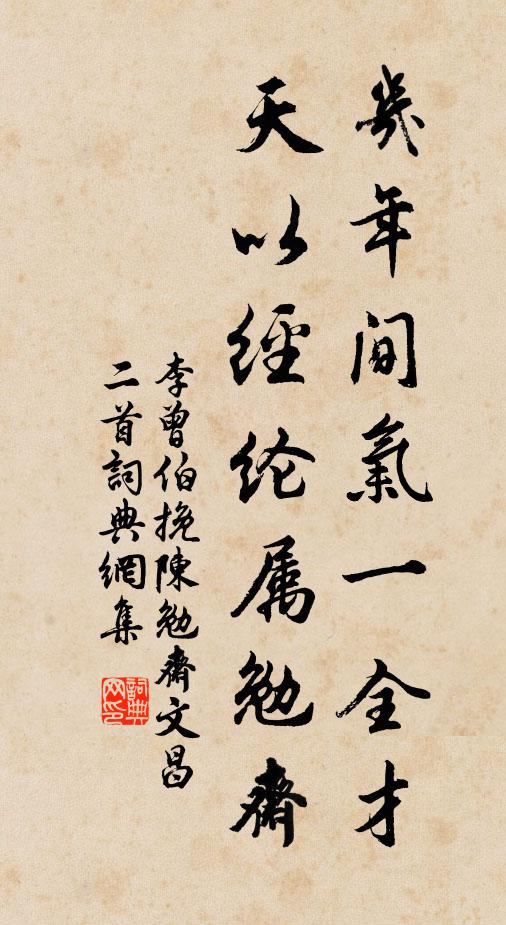 幾年間氣一全才
天以經纶属勉齋
李曾伯挽陳勉齋文昌
二首詞典網集
詞典
网印